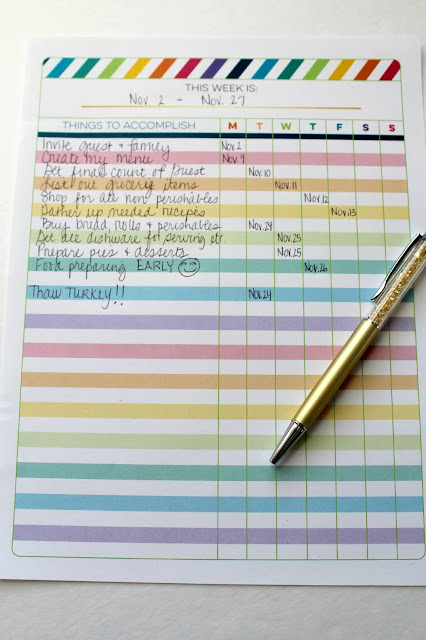 THIS WEEK IS:
Nov. 2 - Nov. 27
THINGS TO ACCOMPLISH M T W T F S S
Invite guest & family Nov 2
Create my menu Nov 9
Get final count of Guest Nov. 10
List out grocery items Nov. 11
Shop for all non perishables Nov. 12
Gather up needed recipes Nov. 13
Buy bread, rolls & perishables Nov. 24
Get all dishware for serving etc. Nov. 25
Prepare pies & desserts Nov. 25
Food preparing EARLY Nov. 26
Thaw TURKEY!! Nov. 24